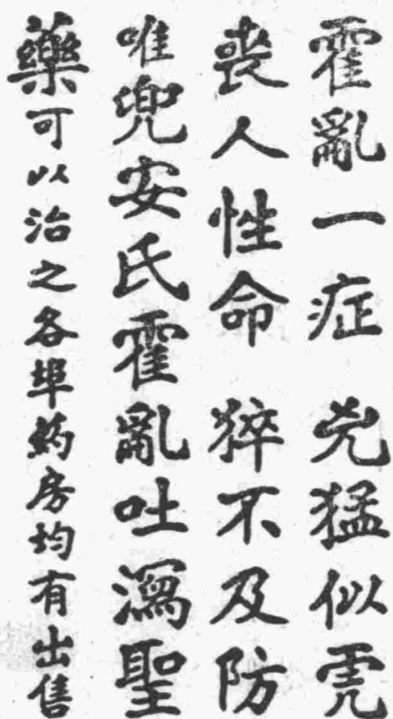 霍亂一症 兇猛似虎
喪人性命 猝不及防
唯兜安氏霍亂吐瀉聖
藥可以治之各埠药房均有出售